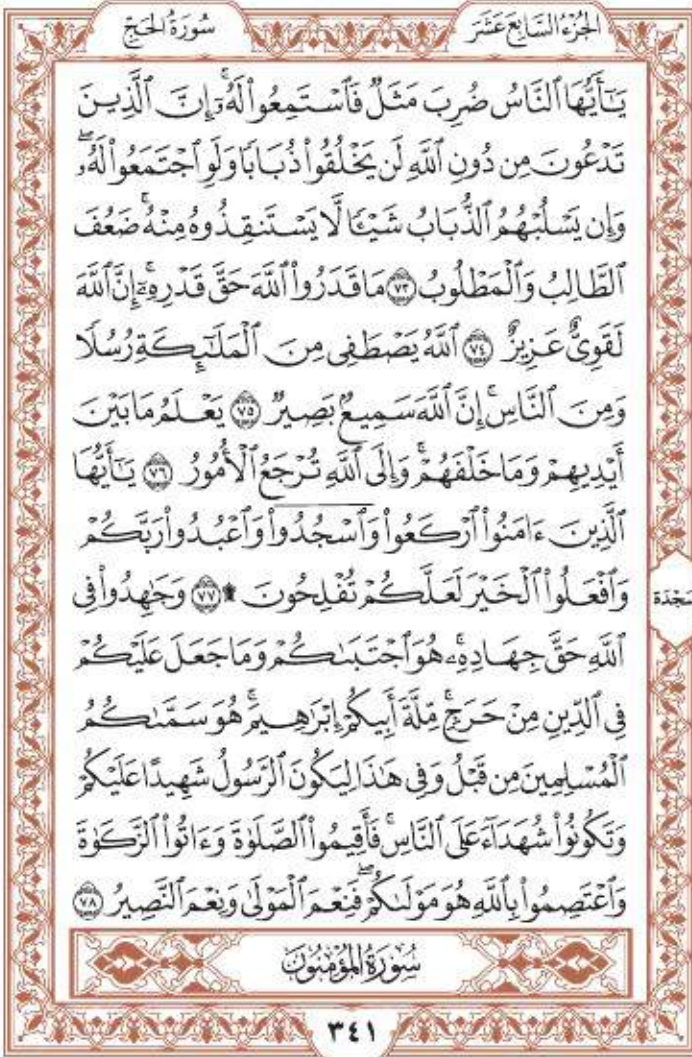 الجُزْءُ السَّابِعَ عَشَرَ
سُورَةُ الحَجِّ
يَـٰٓأَيُّهَا ٱلنَّاسُ ضُرِبَ مَثَلٌ فَٱسْتَمِعُوا۟ لَهُۥٓ ۚ إِنَّ ٱلَّذِينَ
تَدْعُونَ مِن دُونِ ٱللَّهِ لَن يَخْلُقُوا۟ ذُبَابًا وَلَوِ ٱجْتَمَعُوا۟ لَهُۥ ۖ
وَإِن يَسْلُبْهُمُ ٱلذُّبَابُ شَيْـًٔا لَّا يَسْتَنقِذُوهُ مِنْهُ ۚ ضَعُفَ
ٱلطَّالِبُ وَٱلْمَطْلُوبُ ٧٣ مَا قَدَرُوا۟ ٱللَّهَ حَقَّ قَدْرِهِۦٓ ۗ إِنَّ ٱللَّهَ
لَقَوِىٌّ عَزِيزٌ ٧٤ ٱللَّهُ يَصْطَفِى مِنَ ٱلْمَلَـٰٓئِكَةِ رُسُلًا
وَمِنَ ٱلنَّاسِ ۚ إِنَّ ٱللَّهَ سَمِيعٌۢ بَصِيرٌ ٧٥ يَعْلَمُ مَا بَيْنَ
أَيْدِيهِمْ وَمَا خَلْفَهُمْ ۗ وَإِلَى ٱللَّهِ تُرْجَعُ ٱلْأُمُورُ ٧٦ يَـٰٓأَيُّهَا
ٱلَّذِينَ ءَامَنُوا۟ ٱرْكَعُوا۟ وَٱسْجُدُوا۟ وَٱعْبُدُوا۟ رَبَّكُمْ
وَٱفْعَلُوا۟ ٱلْخَيْرَ لَعَلَّكُمْ تُفْلِحُونَ ۩ ٧٧ وَجَـٰهِدُوا۟ فِى
سَجْدَة
ٱللَّهِ حَقَّ جِهَادِهِۦ ۚ هُوَ ٱجْتَبَىٰكُمْ وَمَا جَعَلَ عَلَيْكُمْ
فِى ٱلدِّينِ مِنْ حَرَجٍ ۚ مِّلَّةَ أَبِيكُمْ إِبْرَٰهِيمَ ۚ هُوَ سَمَّىٰكُمُ
ٱلْمُسْلِمِينَ مِن قَبْلُ وَفِى هَـٰذَا لِيَكُونَ ٱلرَّسُولُ شَهِيدًا عَلَيْكُمْ
وَتَكُونُوا۟ شُهَدَآءَ عَلَى ٱلنَّاسِ ۚ فَأَقِيمُوا۟ ٱلصَّلَوٰةَ وَءَاتُوا۟ ٱلزَّكَوٰةَ
وَٱعْتَصِمُوا۟ بِٱللَّهِ هُوَ مَوْلَىٰكُمْ ۖ فَنِعْمَ ٱلْمَوْلَىٰ وَنِعْمَ ٱلنَّصِيرُ ٧٨
سُورَةُ المُؤْمِنُونَ
٣٤١